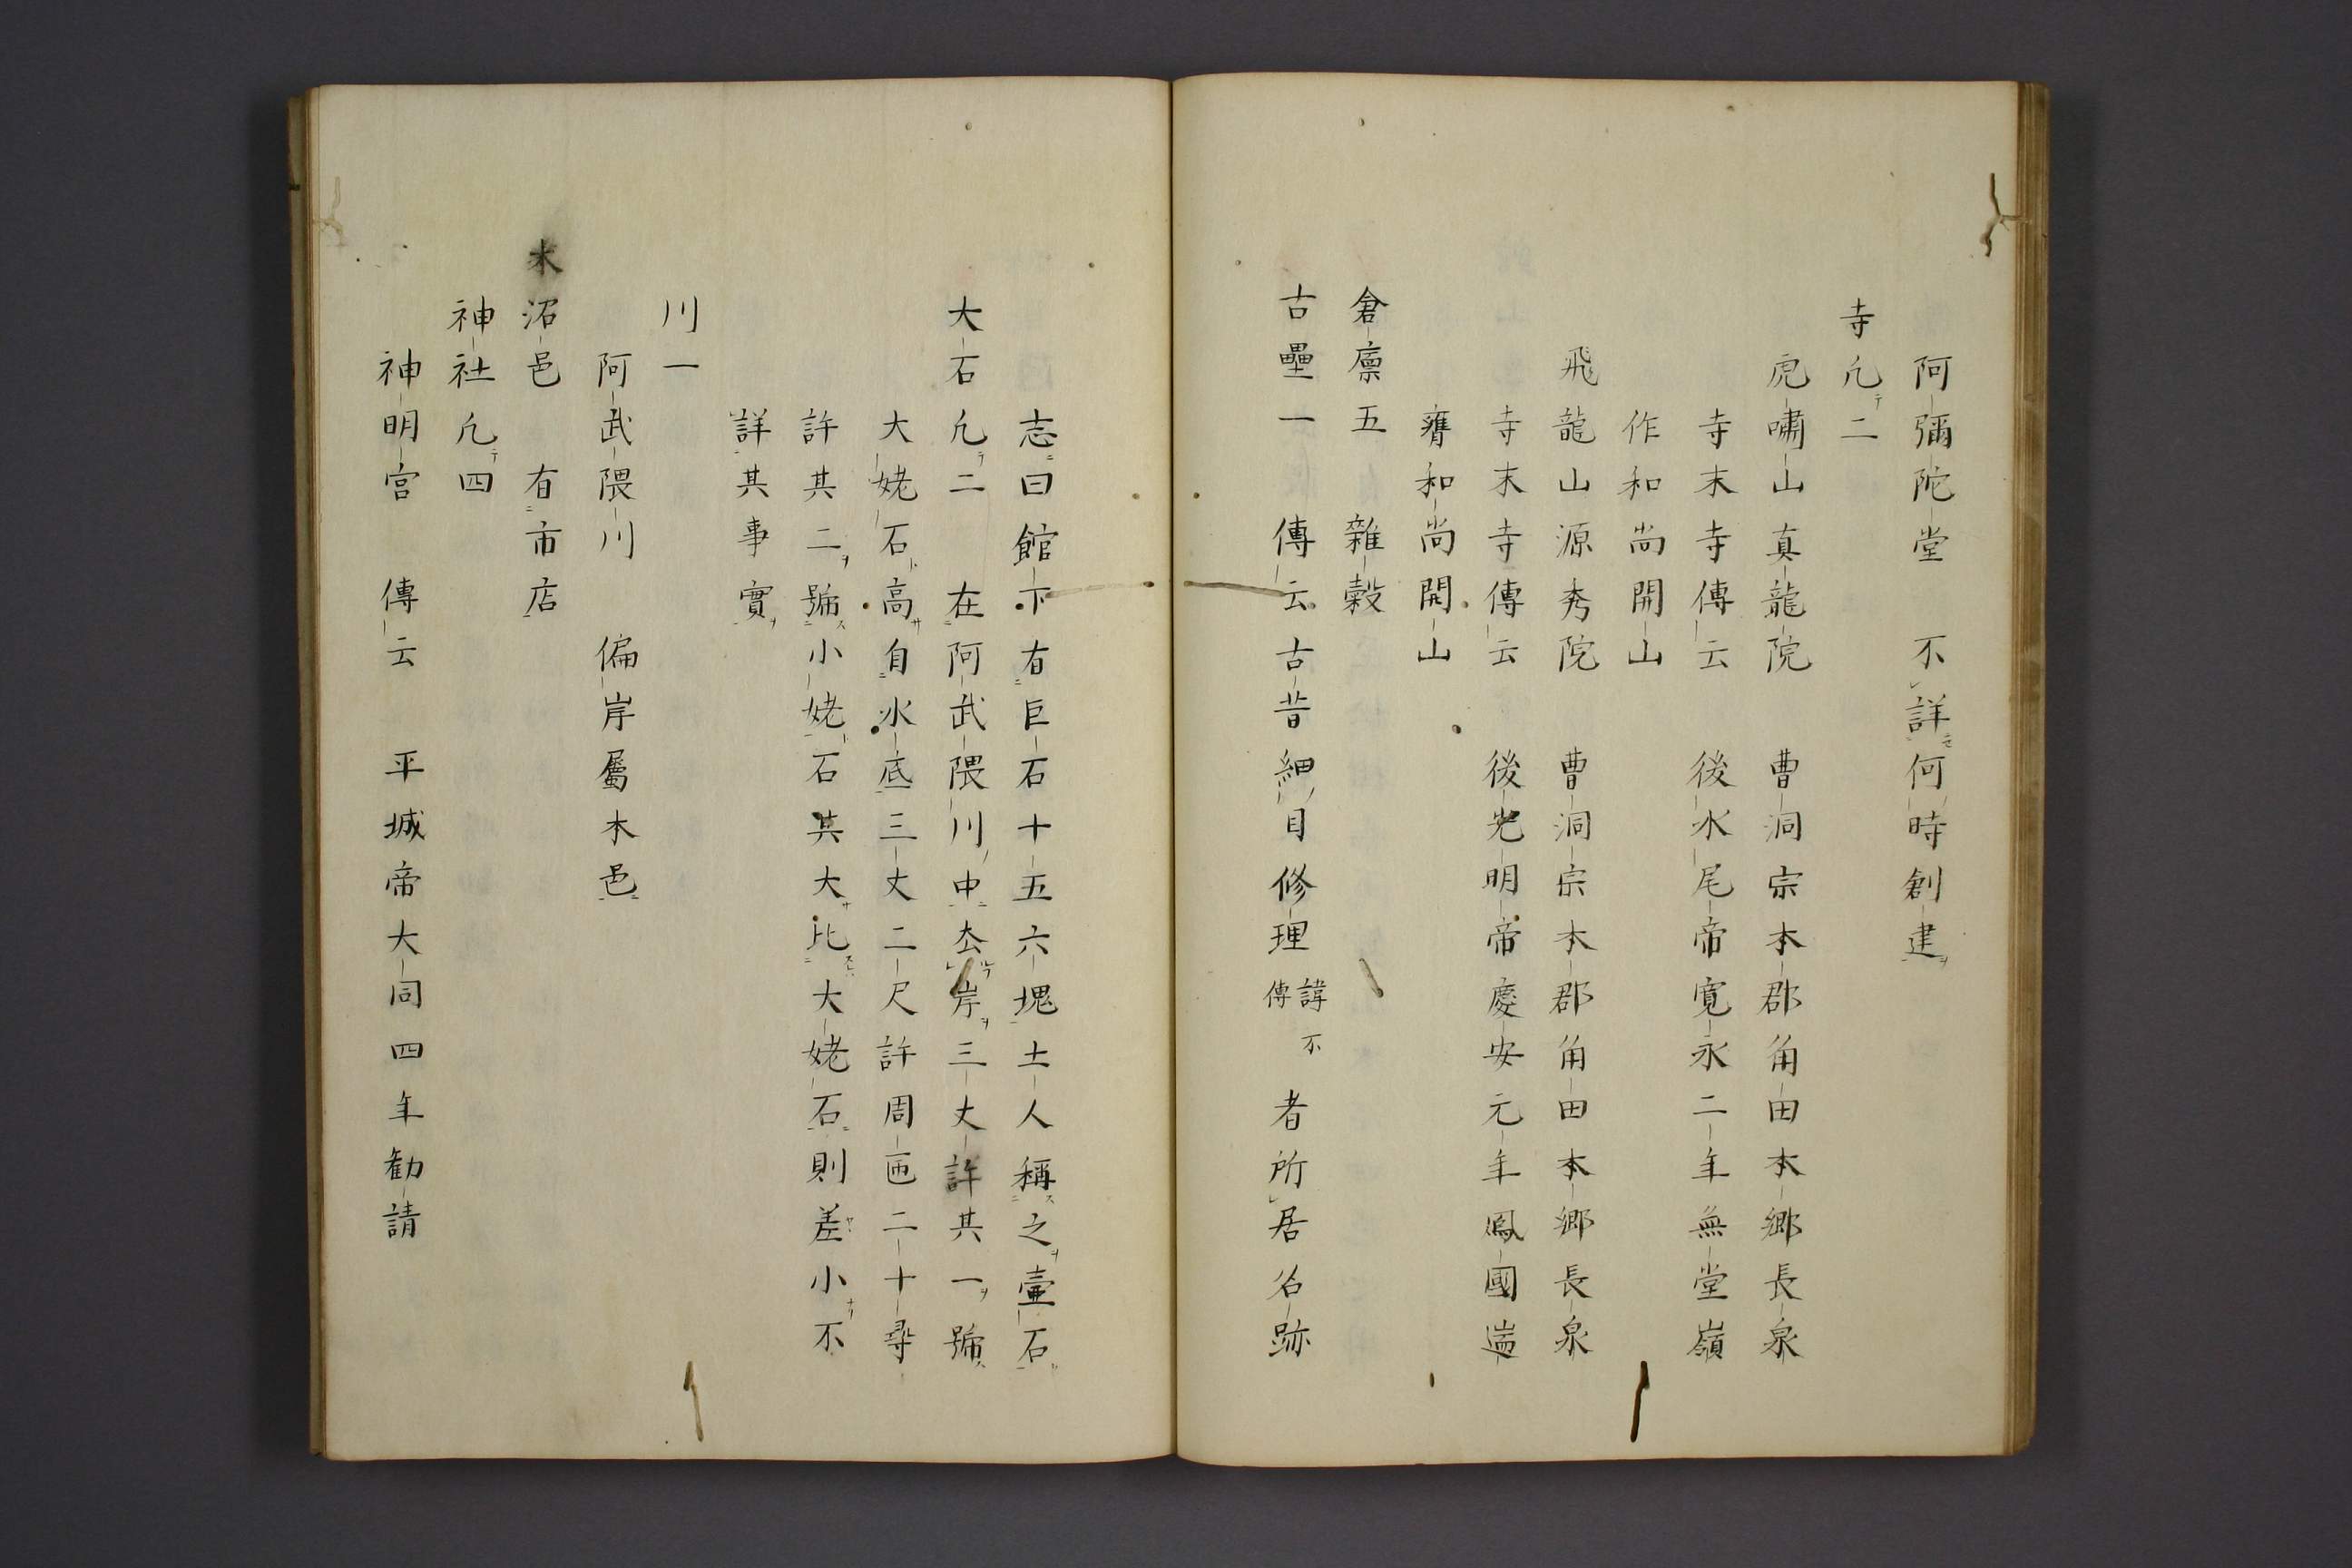 阿彌陀堂　不詳何時創建
寺凢二
虎嘯山真龍院　曹洞宗本郡角田本郷長泉
寺末寺傳云　後水尾帝寛永二年無堂嶺
作和尚開山
飛龍山源秀院　曹洞宗本郡角田本郷長泉
寺末寺傳云　後光明帝慶安元年鳳國邁
癕和尚開山
倉廩五　雜穀
古壘一　傳云古昔細目修理諱不傳者所居名跡
志曰館下有巨石十五六塊土人稱之壷石
大石凢二　在阿武隈川中厺岸三丈許其一號
大姥石高自水底三丈二尺許周匝二十尋
許其二號小姥石其大比大姥石則差小不
詳其事實
川一
阿武隈川　偏岸屬木邑
木沼邑　有市店
神社凢四
神明宮　傳云　平城帝大同四年勧請